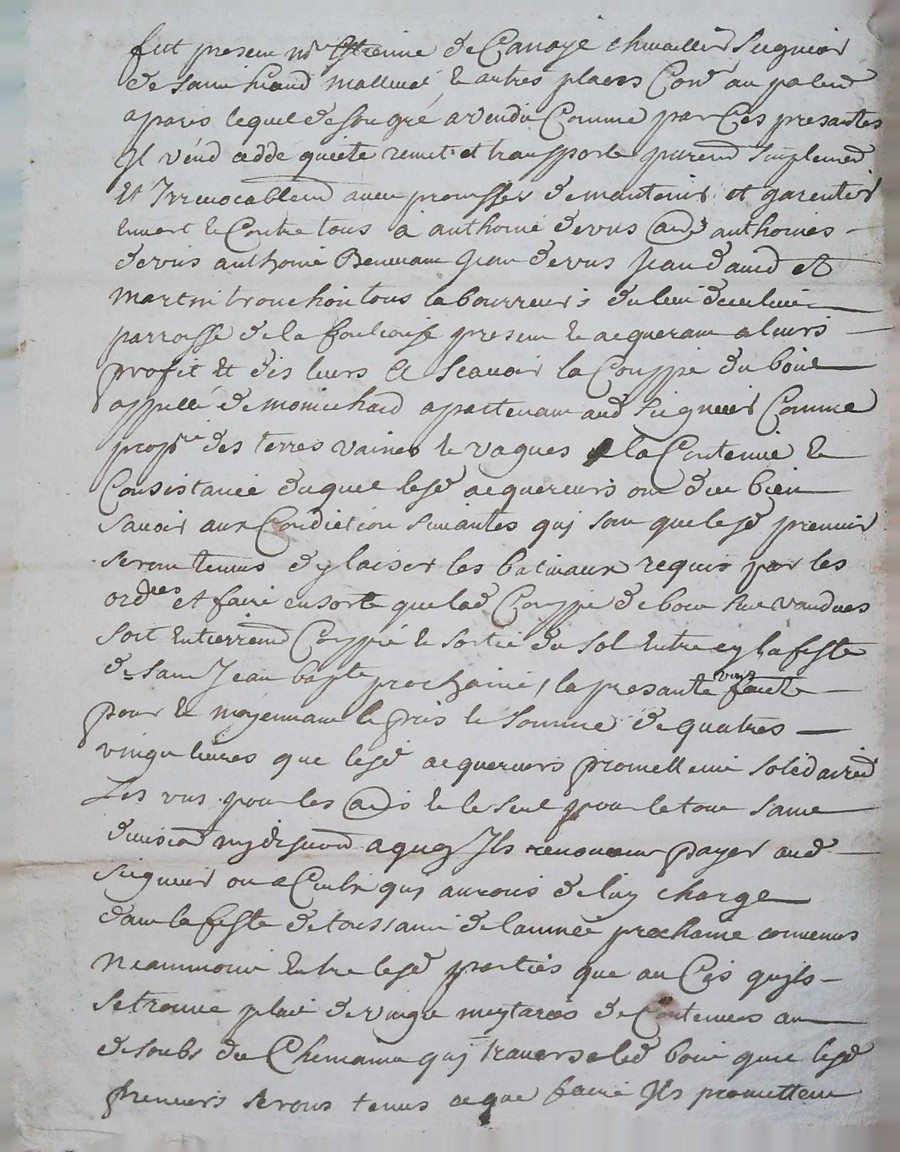 fut presem mr Estienne de Canaye chevallier Seignieur
de Saint haand mallevé & autres places Conr au palend
a paris lequel de son gré a vendu Comme par Ces presantes
Il vend cedde quicte remet et transporte purem̄ Simplemed
Et Irrevocablem̄ avec promesses de maintenir et garentir
envert & Contre tous à anthoine devus aisné anthoines
devus anthoine Jean devus Jean daud et
martin tronchon tous labourreurs du lieu
parroisse de la present & aquerant a leurs
profit & des leurs A Scavoir la Couppe du bois
appellé de monichard apartenam aud Seignieur Comme
proprre des terres vaines & vagues la Contenue &
Consistance duquel lesd aquereurs ont dit bien
savoir aux Condiction suivantes quj sont que lesd preneur
seront tenus dy laiser les balivaux requis par les
ordces et faire en sorte que lad Couppe de bois sus vandues
soit Entierremd Couppé & sortie du sol Entre cy la feste
de Saint Jean bapte prochaine / la presante vante faicte
pour & moyennant le pris & Somme de quatres
vingt livres que lesd aquereurs promettent solidairemd
Les uns pour les aus & le seul pour le tout sanne
division ny discution a quoy Ils renoncent payer aud
Seignieur ou a Celuy quj aurois de luy charge
dans la feste de toussaint de lannee prochaine convenus
Neammoint Entre lesd parties que au Cas quyls
se trouve plus de vingt meytarees de Contenues au
desoubs du Chemain quj traverse led bois que lesd
prenneurs serons tenus ce que faire Ils promettent